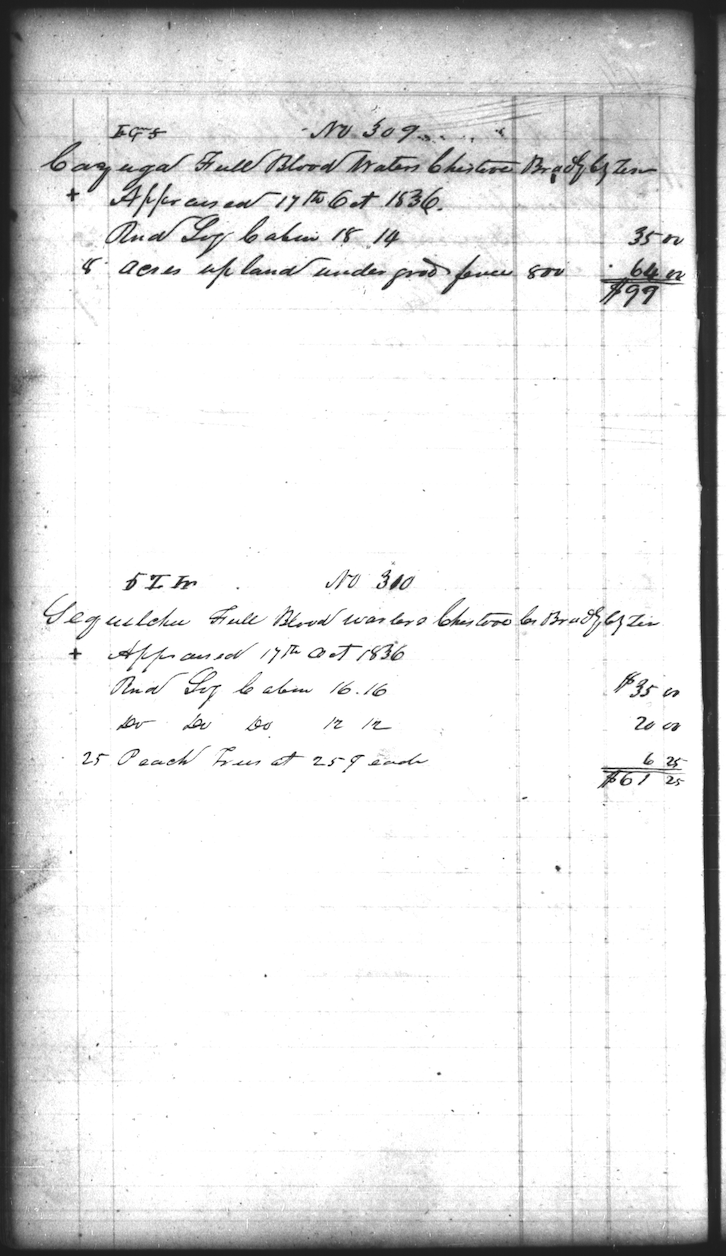 No 309
Cayuga Full Blood Waters Chestooe Bradly Cy Ten
+ Appraised 17th Oct 1836.
Rnd Log Cabin 18 14 35 00
8 acres upland under good fence 800 64 00
$99
No 310
Full Blood waters Chestooe Bradly Cy Ten
+ Appraised 17th Oct 1836
Rnd Log Cabin 16.16 $35 00
Do Do Do 12 12 20 00
25 Peach Trees at 25 each 6 25
$61 25